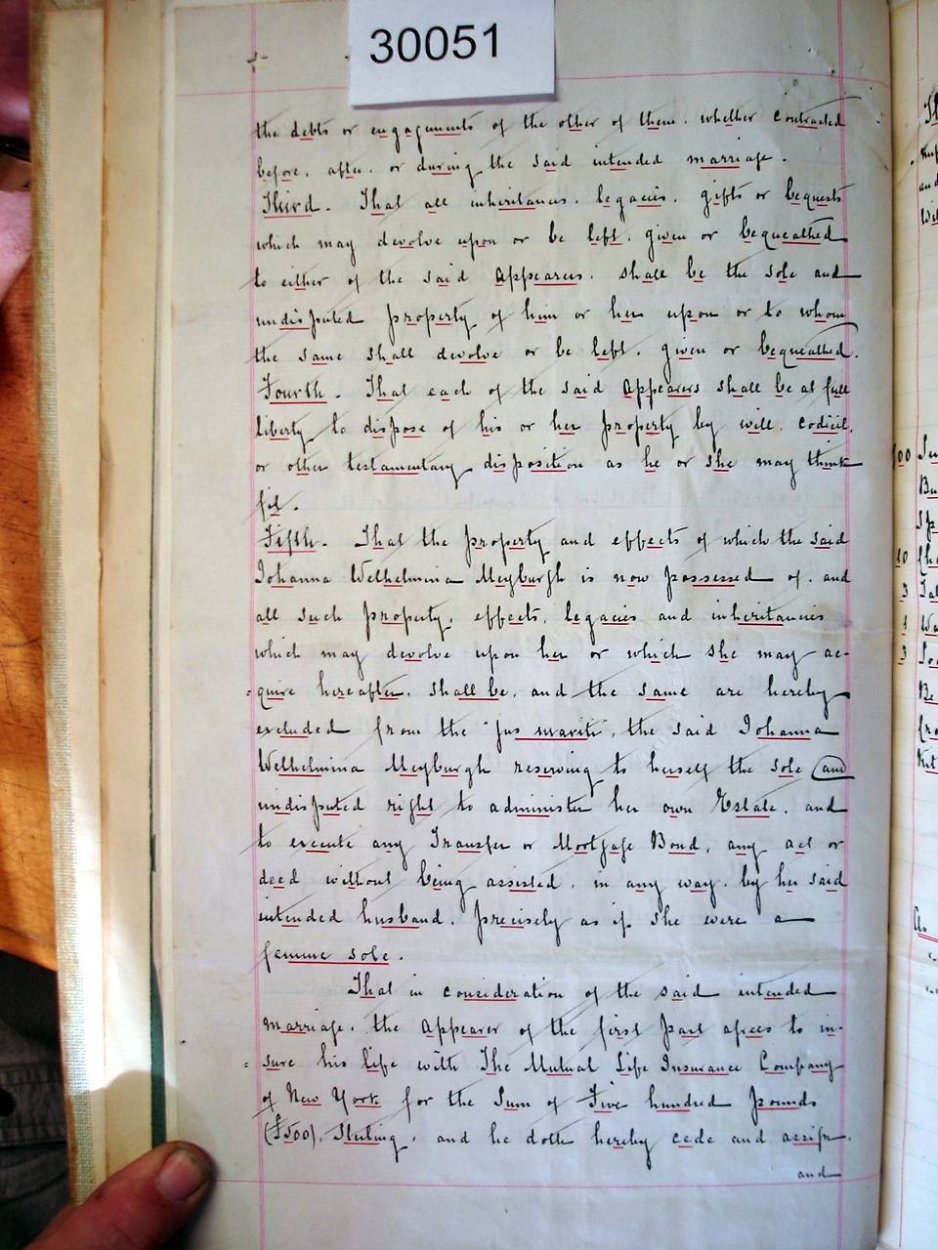 30051
the debts or engagements of the other of them, whether contracted
before, after, or during the said intended marriage.
Third. That all inheritances, legacies, gifts or bequests
which may devolve upon or be left, given or bequeathed
to either of the said Appearers, shall be the sole and
undisputed property of him or her upon or to whom
the same shall devolve or be left, given or bequeathed.
Fourth. That each of the said Appearers shall be at full
liberty to dispose of his or her property by will, codicil,
or other testamentary disposition as he or she may think
fit.
Fifth. That the property and effects of which the said
Johanna Welhelmina Meyburgh is now possessed of, and
all such property, effects, legacies and inheritances
which may devolve upon her or which she may ac-
=quire hereafter, shall be, and the same are hereby
excluded from the "jus mariti", the said Johanna
Welhelmina Meyburgh reserving to herself the sole and
undisputed right to administer her own Estate, and
to execute any Transfer or Mortgage Bond, any act or
deed without being assisted, in any way, by her said
intended husband, precisely as if she were a
femme sole.
That in consideration of the said intended
marriage, the Appearer of the first part agrees to in-
=sure his life with The Mutual Life Insurance Company
of New York for the Sum of Five hundred pounds
(£500), Sterling, and he doth hereby cede and assign
and
100
Bu
10
3
1
3
Be
As